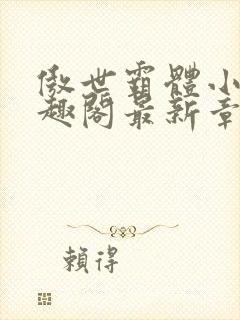 傲世霸體小
趣閣最新章
賴得